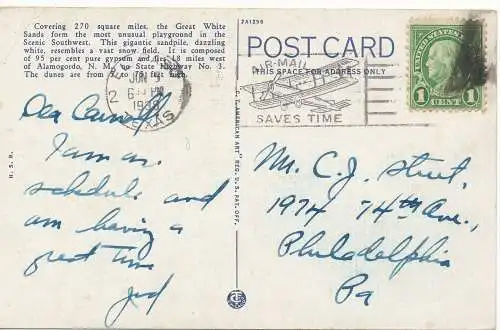 Covering 270 square miles, the Great White
Sands form the most unusual playground in the
Scenic Southwest. This gigantic sandpile, dazzling
white, resembles a vast snow field. It is composed
of 95 per cent pure gypsum and lies 18 miles west
of Alamogordo, N. M., on State Highway No. 3.
The dunes are from 10 to feet high.
2A1296
POST CARD
THIS SPACE FOR ADDRESS ONLY
JUN
2
6 PM
TEXAS
AIR-MAIL
SAVES TIME
UNITED STATES
1 CENT 1
H. S. B.
C. T. "AMERICAN ART" REG. U. S. PAT. OFF.
Dear
I am on
schedule and
am having a
great time
Jed
Mr. C. J. Street,
1974 74th Ave.,
Philadelphia
Pa